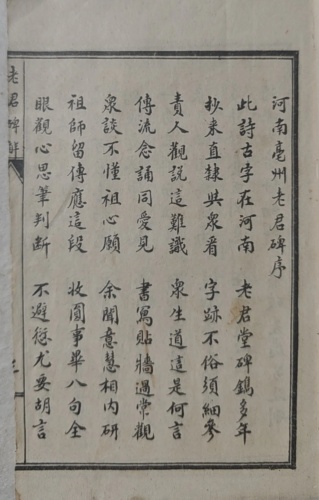 河南亳州老君碑序
此詩古字在河南　老君堂碑鐫多年
抄來直隸與衆看　字跡不俗須細參
責人觀說這難識　衆生道這是何言
傳流念誦同愛見　書寫貼牆遇常觀
衆談不懂祖心願　余聞意慧相內研
祖師留傳應這段　收圓事畢八句全
眼觀心思筆判斷　不避愆尤妄胡言
老君碑